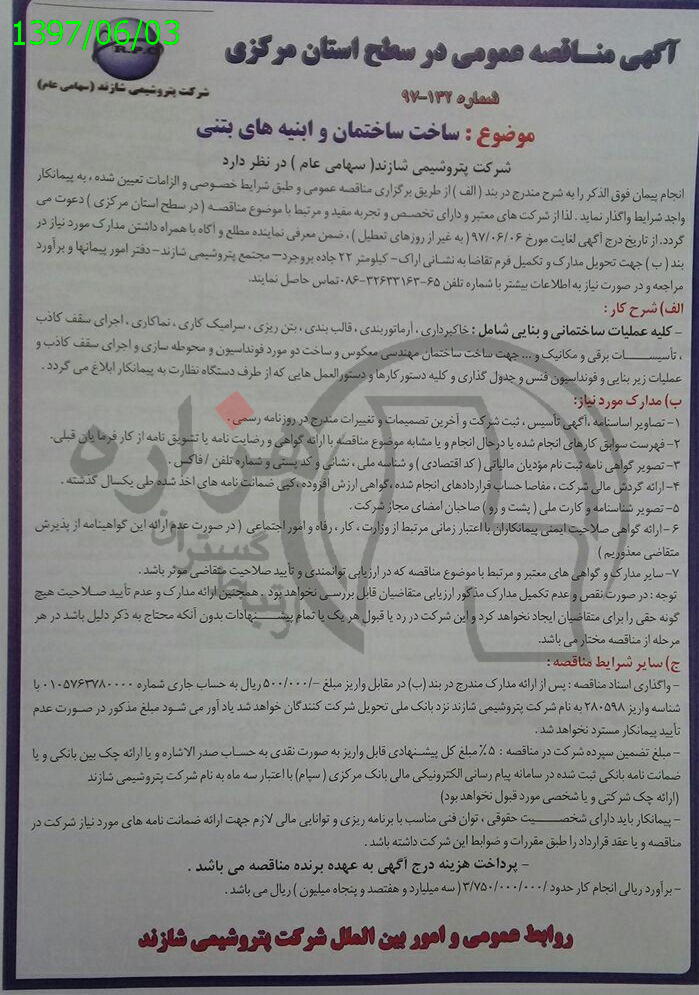 1397/06/03
آگهی مناقصه عمومی در سطح استان مرکزی
شرکت پتروشیمی شازند (سهامی عام)
شماره ۱۳۲-۹۷
موضوع : ساخت ساختمان و ابنیه های بتنی
شرکت پتروشیمی شازند( سهامی عام ) در نظر دارد
انجام پیمان فوق الذکر را به شرح مندرج در بند ( الف ) از طریق برگزاری مناقصه عمومی و طبق شرایط خصوصی و الزامات تعیین شده ، به پیمانکار
واجد شرایط واگذار نماید . لذا از شرکت های معتبر و دارای تخصص و تجربه مفید و مرتبط با موضوع مناقصه ( در سطح استان مرکزی ) دعوت می
گردد. از تاریخ درج آگهی لغایت مورخ ۹۷/۰۶/۰۶ ( به غیر از روزهای تعطیل ) ، ضمن معرفی نماینده مطلع و آگاه با همراه داشتن مدارک مورد نیاز در
بند ( ب ) جهت تحویل مدارک و تکمیل فرم تقاضا به نشانی اراک- کیلومتر ۲۲ جاده بروجرد- مجتمع پتروشیمی شازند- دفتر امور پیمانها و برآورد
مراجعه و در صورت نیاز به اطلاعات بیشتر با شماره تلفن ۶۵-۳۲۶۳۳۱۶۳-۰۸۶ تماس حاصل نمایند.
الف) شرح کار :
- کلیه عملیات ساختمانی و بنایی شامل : خاکبرداری ، آرماتوربندی ، قالب بندی ، بتن ریزی ، سرامیک کاری ، نماکاری ، اجرای سقف کاذب
، تأسیسات برقی و مکانیک و ... جهت ساخت ساختمان مهندسی معکوس و ساخت دو مورد فونداسیون و محوطه سازی و اجرای سقف کاذب و
عملیات زیر بنایی و فونداسیون فنس و جدول گذاری و کلیه دستور کارها و دستورالعمل هایی که از طرف دستگاه نظارت به پیمانکار ابلاغ می گردد .
ب) مدارک مورد نیاز:
۱- تصاویر اساسنامه ،آگهی تأسیس ، ثبت شرکت و آخرین تصمیمات و تغییرات مندرج در روزنامه رسمی.
۲- فهرست سوابق کارهای انجام شده یا درحال انجام و یا مشابه موضوع مناقصه با ارائه گواهی و رضایت نامه یا تشویق نامه از کار فرما یان قبلی.
۳- تصویر گواهی نامه ثبت نام مؤدیان مالیاتی ( کد اقتصادی ) و شناسه ملی ، نشانی و کد پستی و شماره تلفن / فاکس .
۴- ارائه گردش مالی شرکت ، مفاصا حساب قراردادهای انجام شده ،گواهی ارزش افزوده ،کپی ضمانت نامه های اخذ شده طی یکسال گذشته .
۵- تصویر شناسنامه و کارت ملی ( پشت و رو ) صاحبان امضای مجاز شرکت .
۶ - ارائه گواهی صلاحیت ایمنی پیمانکاران با اعتبار زمانی مرتبط از وزارت ، کار ، رفاه و امور اجتماعی ( در صورت عدم ارائه این گواهینامه از پذیرش
متقاضی معذوریم )
۷- سایر مدارک و گواهی های معتبر و مرتبط با موضوع مناقصه که در ارزیابی توانمندی و تأیید صلاحیت متقاضی موثر باشد .
توجه : در صورت نقص و عدم تکمیل مدارک مذکور ارزیابی متقاضیان قابل بررسی نخواهد بود . همچنین ارائه مدارک و عدم تأیید صلاحیت هیچ
گونه حقی را برای متقاضیان ایجاد نخواهد کرد و این شرکت در رد یا قبول هر یک یا تمام پیشنهادات بدون آنکه محتاج به ذکر دلیل باشد در هر
مرحله از مناقصه مختار می باشد.
ج) سایر شرایط مناقصه :
- واگذاری اسناد مناقصه : پس از ارائه مدارک مندرج در بند (ب) در مقابل واریز مبلغ -/۵۰۰/۰۰۰ ریال به حساب جاری شماره ۰۱۰۵۷۶۳۷۸۰۰۰۰ با
شناسه واریز ۲۸۰۵۹۸ به نام شرکت پتروشیمی شازند نزد بانک ملی تحویل شرکت کنندگان خواهد شد یاد آور می شود مبلغ مذکور در صورت عدم
تأیید پیمانکار مسترد نخواهد شد .
- مبلغ تضمین سپرده شرکت در مناقصه : ۵٪ مبلغ کل پیشنهادی قابل واریز به صورت نقدی به حساب صدر الاشاره و یا ارائه چک بین بانکی و یا
ضمانت نامه بانکی ثبت شده در سامانه پیام رسانی الکترونیکی مالی بانک مرکزی ( سپام) با اعتبار سه ماه به نام شرکت پتروشیمی شازند
(ارائه چک شرکتی و یا شخصی مورد قبول نخواهد بود)
- پیمانکار باید دارای شخصیت حقوقی ، توان فنی مناسب با برنامه ریزی و توانایی مالی لازم جهت ارائه ضمانت نامه های مورد نیاز شرکت در
مناقصه و یا عقد قرارداد را طبق مقررات و ضوابط این شرکت داشته باشد .
- پرداخت هزینه درج آگهی به عهده برنده مناقصه می باشد .
- برآورد ریالی انجام کار حدود /۳/۷۵۰/۰۰۰/۰۰۰ ( سه میلیارد و هفتصد و پنجاه میلیون ) ریال می باشد .
روابط عمومی و امور بین الملل شرکت پتروشیمی شازند